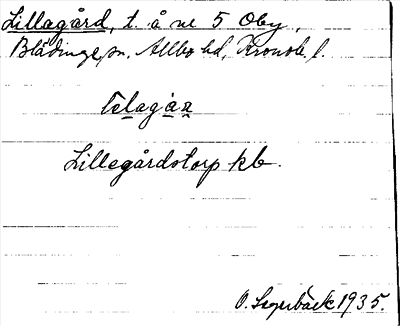 Lillagård, t. å nr 5 Oby,
Blädinge sn. Allbo hd, Kronob. l.
Lillegårdstorp kb.
O. Sagerbäck 1935.